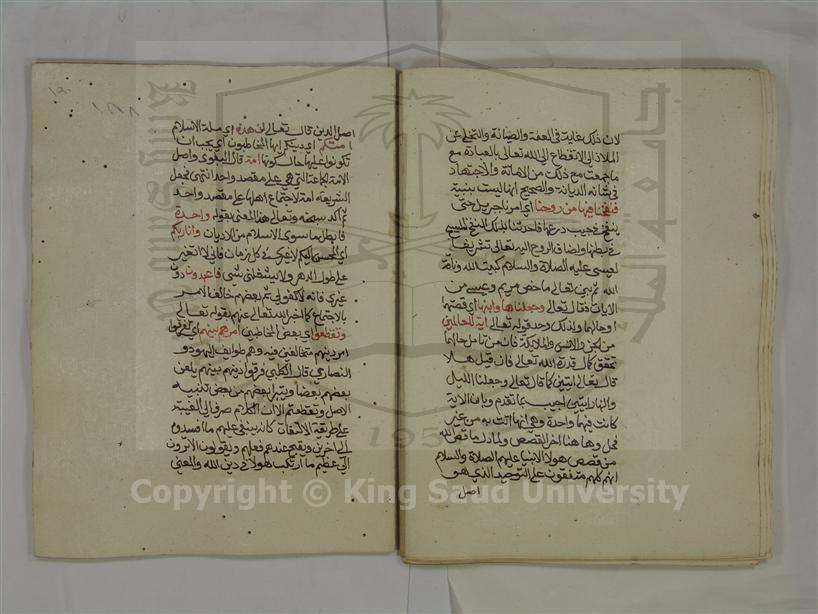 لان ذلك غاية في العفة والصيانة والتخلي عن
الملاذ الى الانقطاع الى الله تعالى بالعبادة مع
ما جمعت مع ذلك من الامانة والاجتهاد
في شانه الديانة والصحيح انها ليست بنبية
فنفخنا فيها من روحنا اي امرنا جبريل حتى
ينفخ في جيب درعها فاحدثنا بذلك النفخ المسيح
في بطنها واضاف الروح اليه تعالى تشريفا
لعيسى عليه الصلاة والسلام كبيت الله وناقة
الله ثم بين تعالى ما خص مريم وعيسى من
الايات فقال تعالى وجعلناها وابنها اي قصتها
او حالهما ولذلك وحد قوله تعالى اية للعالمين
من الجن والانس والملائكة فان من تامل حالهما
تحقق كمال قدرة الله تعالى فان قيل هلا
قال تعالى ايتين كما قال تعالى وجعلنا الليل
والنهار ايتين اجيب بما تقدم وبان الاية
كانت فيهما واحدة وهي انها اتت به من غير
فحل وهاهنا اخر القصص ولما دل ما قص الله
من قصص هولا الانبيا عليهم الصلاة والسلام
انهم كلهم متفقون على التوحيد الذي هو
اصل
اصل الدين قال تعالى ان هذه اي ملة الاسلام
امتكم اي دينكم ايها المخاطبون اي يجب ان
تكونوا عليها حال كونها امة قال البغوي واصل
الامة الجماعة التي هي على مقصد واحد انتهى فجعل
الشريعة امة لاجتماع اهلها على مقصد واحد
ثم اكد سبحانه وتعالى هذا المعنى بقوله واحدة
فابطل ما سوى الاسلام من الاديان وانا ربكم
اي المحسن اليكم لا شريك في كل زمان فاني لا اتغير
على طول الدهر ولا يشغلني شي فاعبدون دون
غيري فانه لا كفو لي ثم بعضهم خالف الامر
بالاجتماع كما اخبر الله تعالى عنهم بقوله تعالى
وتقطعوا اي بعض المخاطبين امرهم بينهم اي تفرقوا
امر دينهم متخالفين فيه وهم طوايف اليهود و
النصارى قال الكلبي فرقوا دينهم بينهم يلعن
بعضهم بعضا ويتبرا بعضهم من بعض تنبيه
الاصل وتقطعتم الا ان الكلام صرف الى الغيبة
على طريقة الالتفات كانه ينعي عليهم ما افسدوه
الى اخرين ويقبح عندهم فعلهم ويقول الا ترون
الى عظيم ما ارتكب هولا في دين الله والمعنى
Copyright © King Saud University